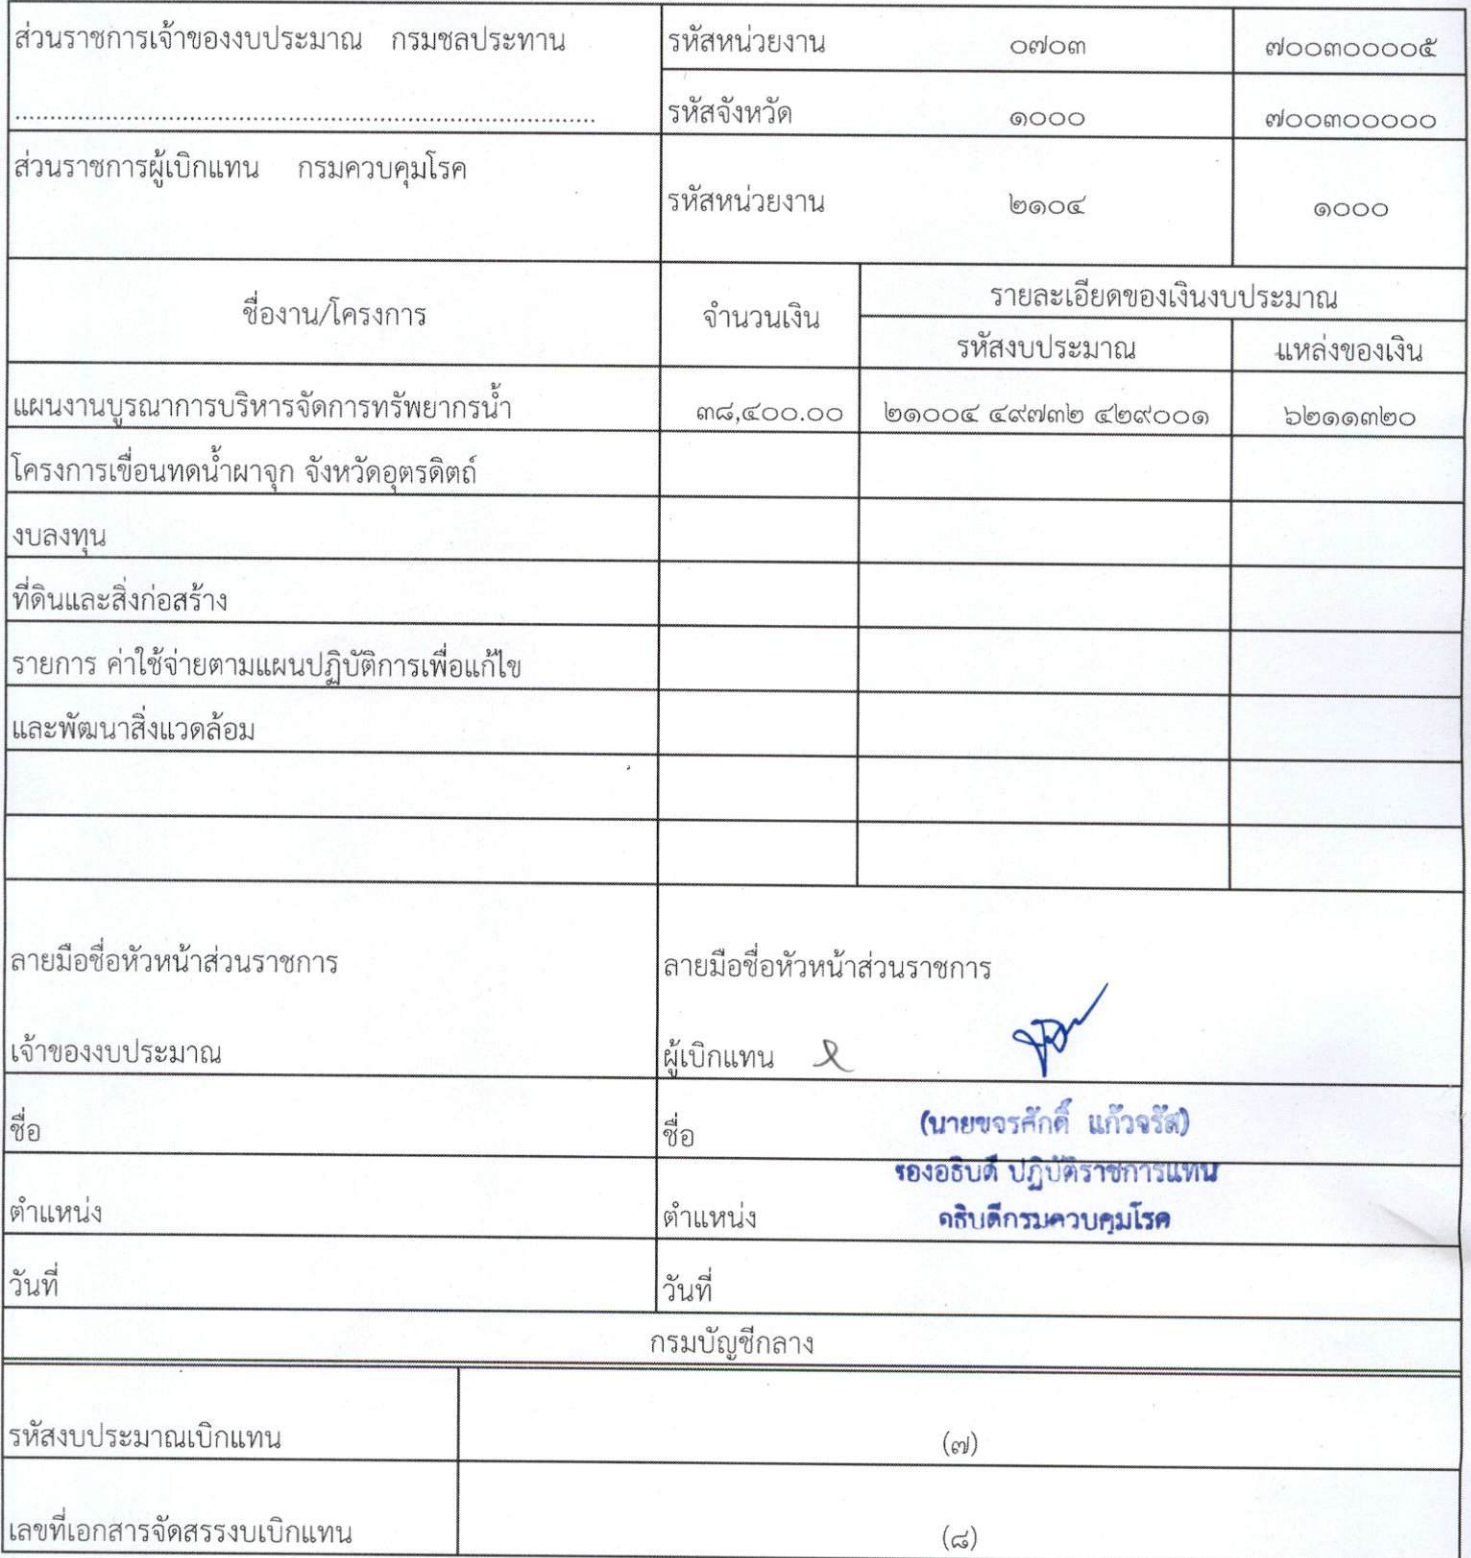 ส่วนราชการเจ้าของงบประมาณ กรมชลประทาน รหัสหน่วยงาน ๐๗๐๓ ๗๐๐๓๐๐๐๐๕
........................................................................................ รหัสจังหวัด ๑๐๐๐ ๗๐๐๓๐๐๐๐๐
ส่วนราชการผู้เบิกแทน กรมควบคุมโรค
รหัสหน่วยงาน ๒๑๐๔ ๑๐๐๐
ชื่องาน/โครงการ จำนวนเงิน รายละเอียดของเงินงบประมาณ
รหัสงบประมาณ แหล่งของเงิน
แผนงานบูรณาการบริหารจัดการทรัพยากรน้ำ ๓๘,๔๐๐.๐๐ ๒๑๐๐๔ ๔๙๗๓๒ ๔๒๙๐๐๑ ๖๒๑๑๓๒๐
โครงการเขื่อนทดน้ำผาจุก จังหวัดอุตรดิตถ์
งบลงทุน
ที่ดินและสิ่งก่อสร้าง
รายการ ค่าใช้จ่ายตามแผนปฏิบัติการเพื่อแก้ไข
และพัฒนาสิ่งแวดล้อม
ลายมือชื่อหัวหน้าส่วนราชการ ลายมือชื่อหัวหน้าส่วนราชการ
เจ้าของงบประมาณ ผู้เบิกแทน
ชื่อ ชื่อ (นายขจรศักดิ์ แก้วจรัส)
รองอธิบดี ปฏิบัติราชการแทน
ตำแหน่ง ตำแหน่ง อธิบดีกรมควบคุมโรค
วันที่ วันที่
กรมบัญชีกลาง
รหัสงบประมาณเบิกแทน (๗)
เลขที่เอกสารจัดสรรงบเบิกแทน (๘)